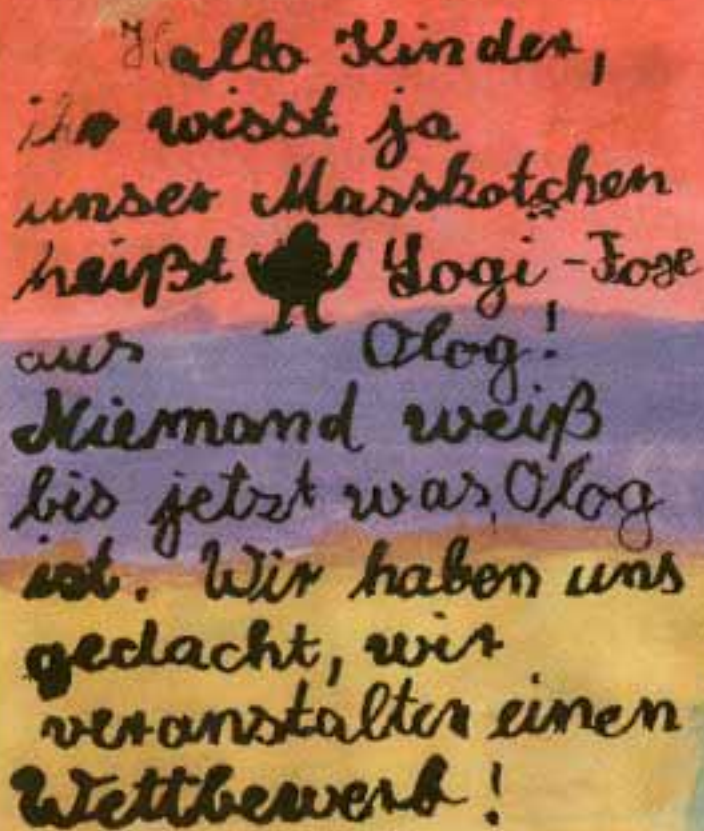 Hallo Kinder,
ihr wisst ja
unser Masskotchen
heißt Yogi-Foxe
aus Olog!
Niemand weiß
bis jetzt was Olog
ist. Wir haben uns
gedacht, wir
veranstalten einen
Wettbewerb!